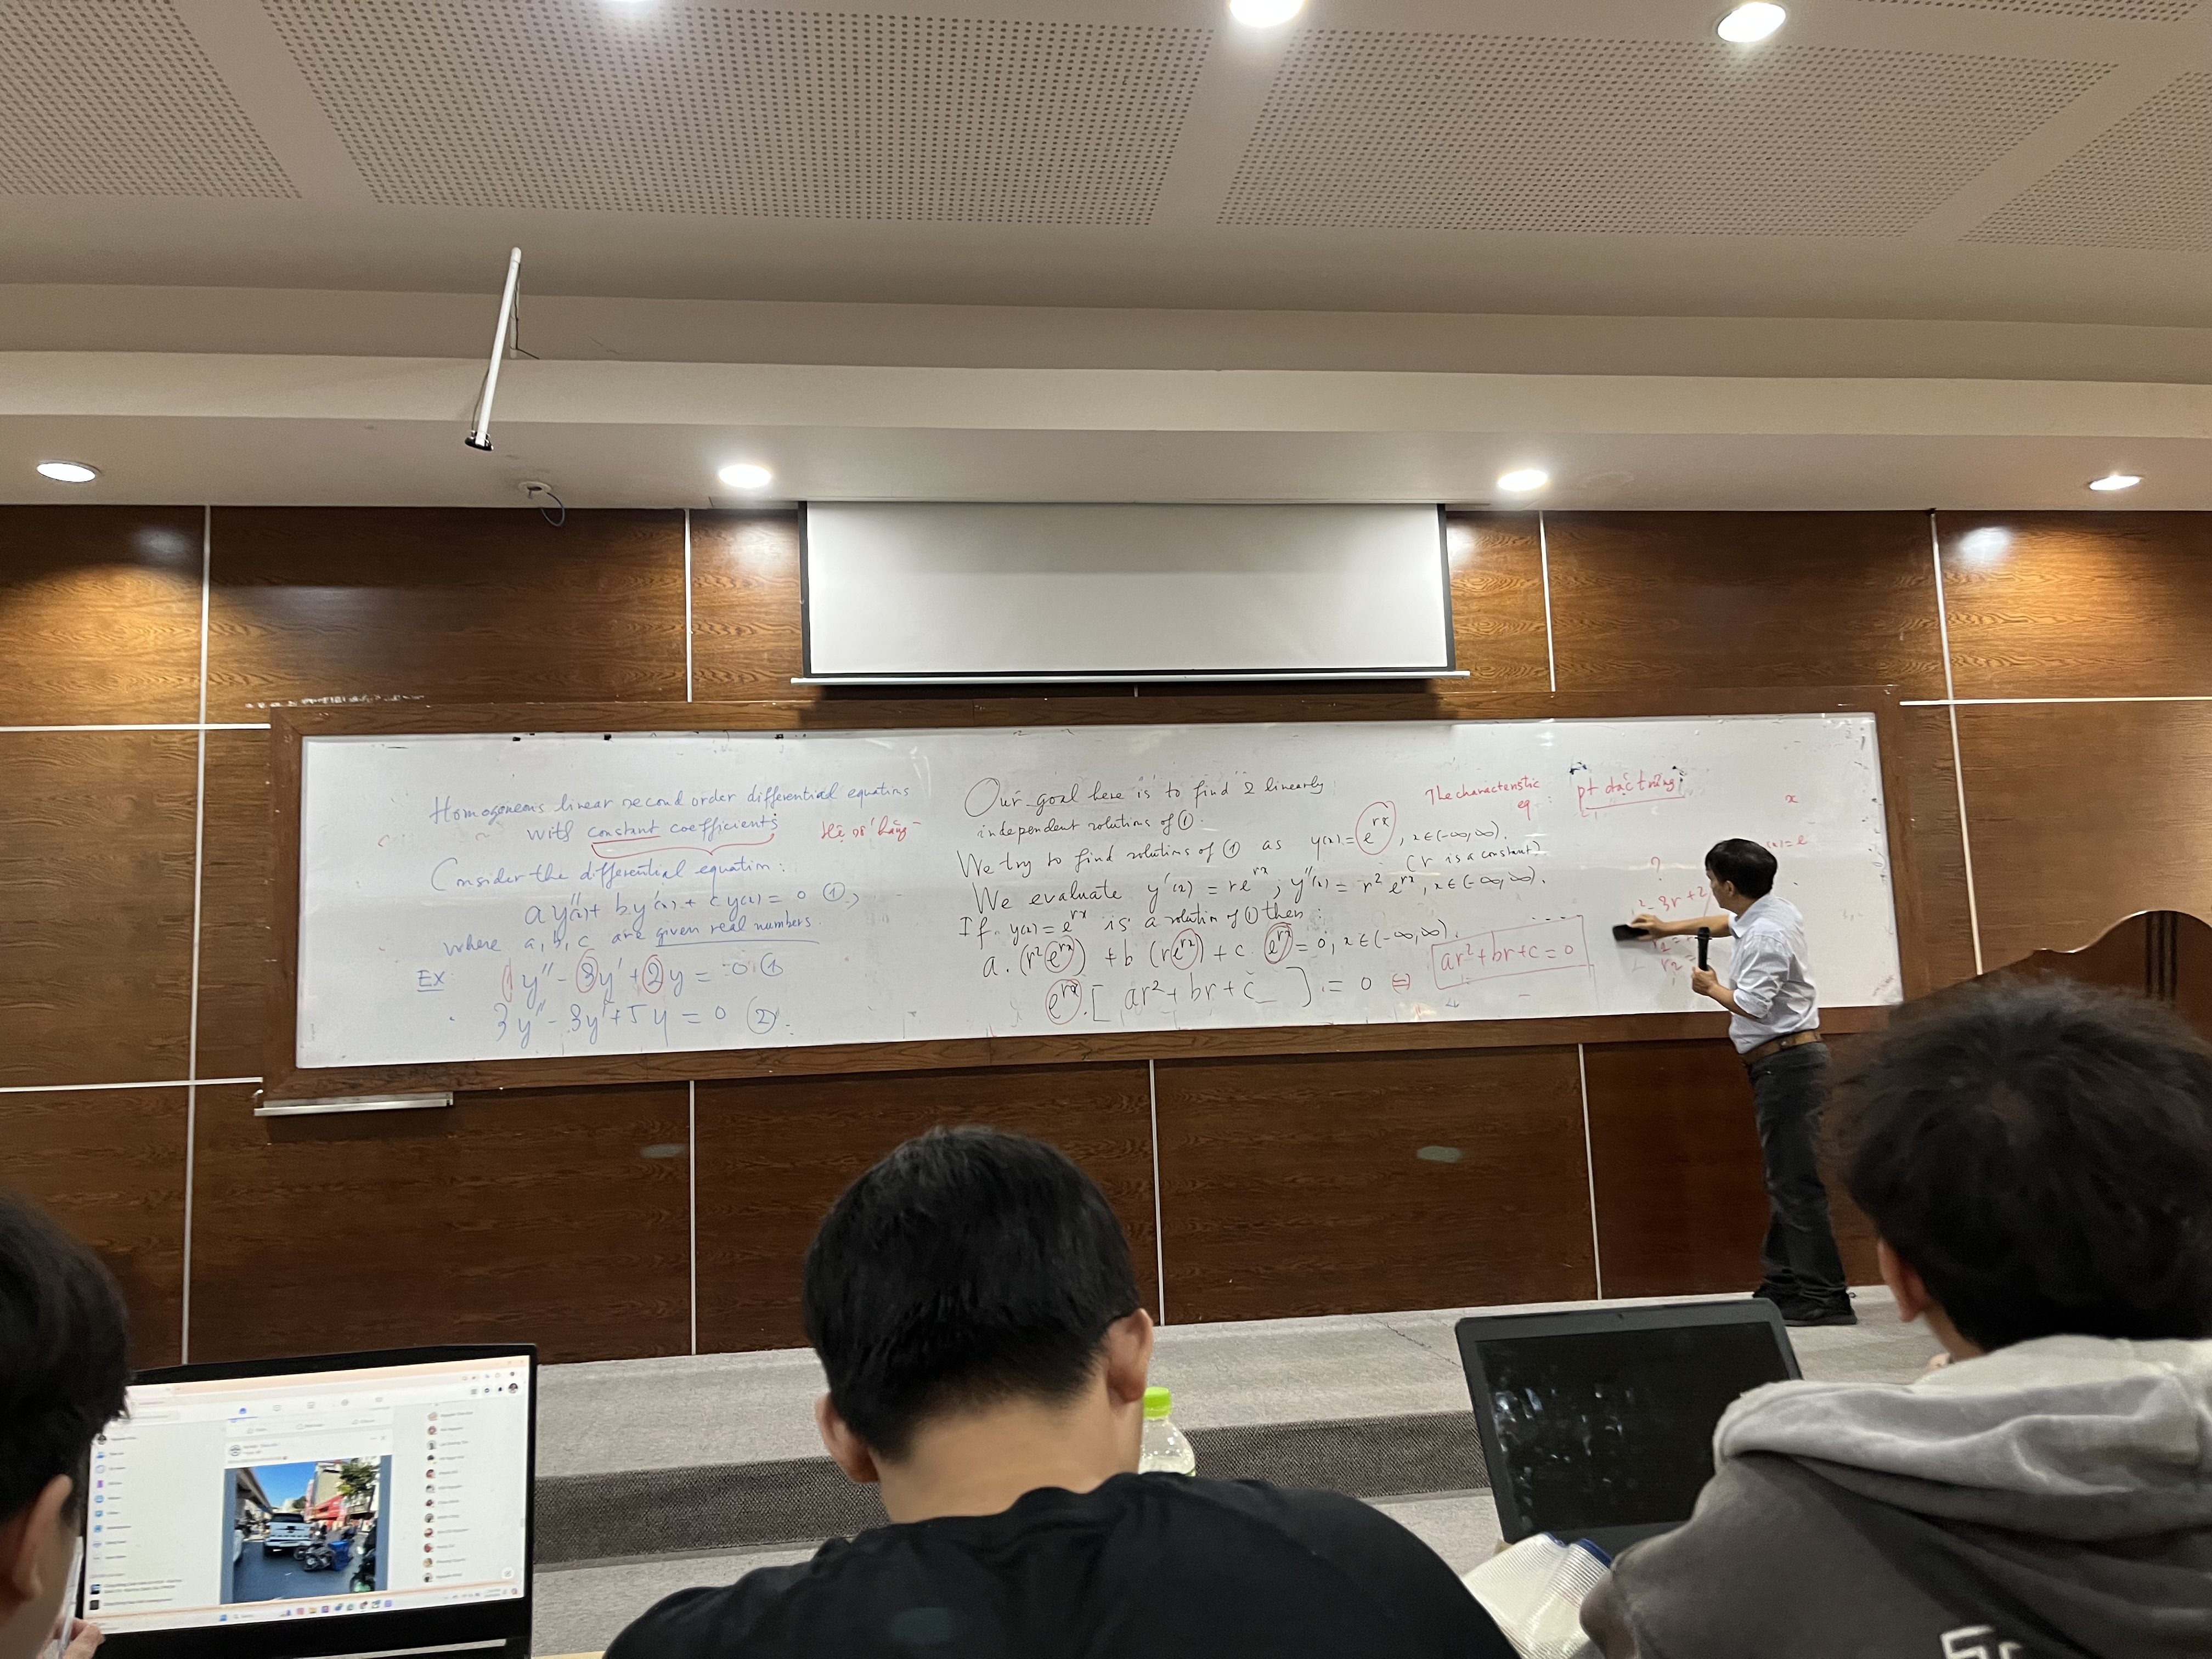 Homogeneous linear second order differential equations
with constant coefficients
Hệ số hằng
Consider the differential equation:
ay''(x) + by'(x) + cy(x) = 0 ①,
where a, b, c are given real numbers.
EX
1y'' - 3y' + 2y = 0 ①
3y'' - 3y' + 5y = 0 ②
Our goal here is to find 2 linearly
independent solutions of ①.
We try to find solutions of ① as y(x) = e^{rx}, x ∈ (-∞, ∞).
(r is a constant)
We evaluate y'(x) = re^{rx}; y''(x) = r² e^{rx}, x ∈ (-∞, ∞).
If y(x) = e^{rx} is a solution of ① then:
a. (r² e^{rx}) + b (re^{rx}) + c. e^{rx} = 0, x ∈ (-∞, ∞).
e^{rx}. [ ar² + br + c ] = 0 ⇔ ar² + br + c = 0
The characteristic
eq: pt đặc trưng
x
(x) = e
?
² - 3r + 2
r₂ =